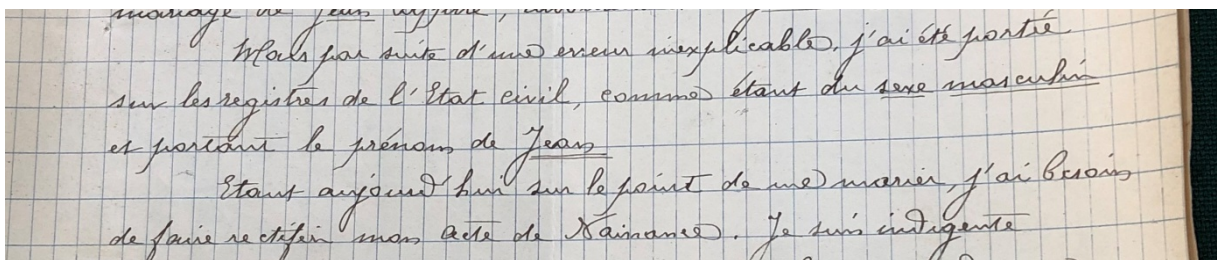 mariage de Jean
Mais par suite d'une erreur inexplicable, j'ai été portée
sur les registres de l'Etat civil, comme étant du sexe masculin
et portant le prénom de Jean
Etant aujourd'hui sur le point de me marier, j'ai besoin
de faire rectifier mon acte de Naissance. Je suis indigente